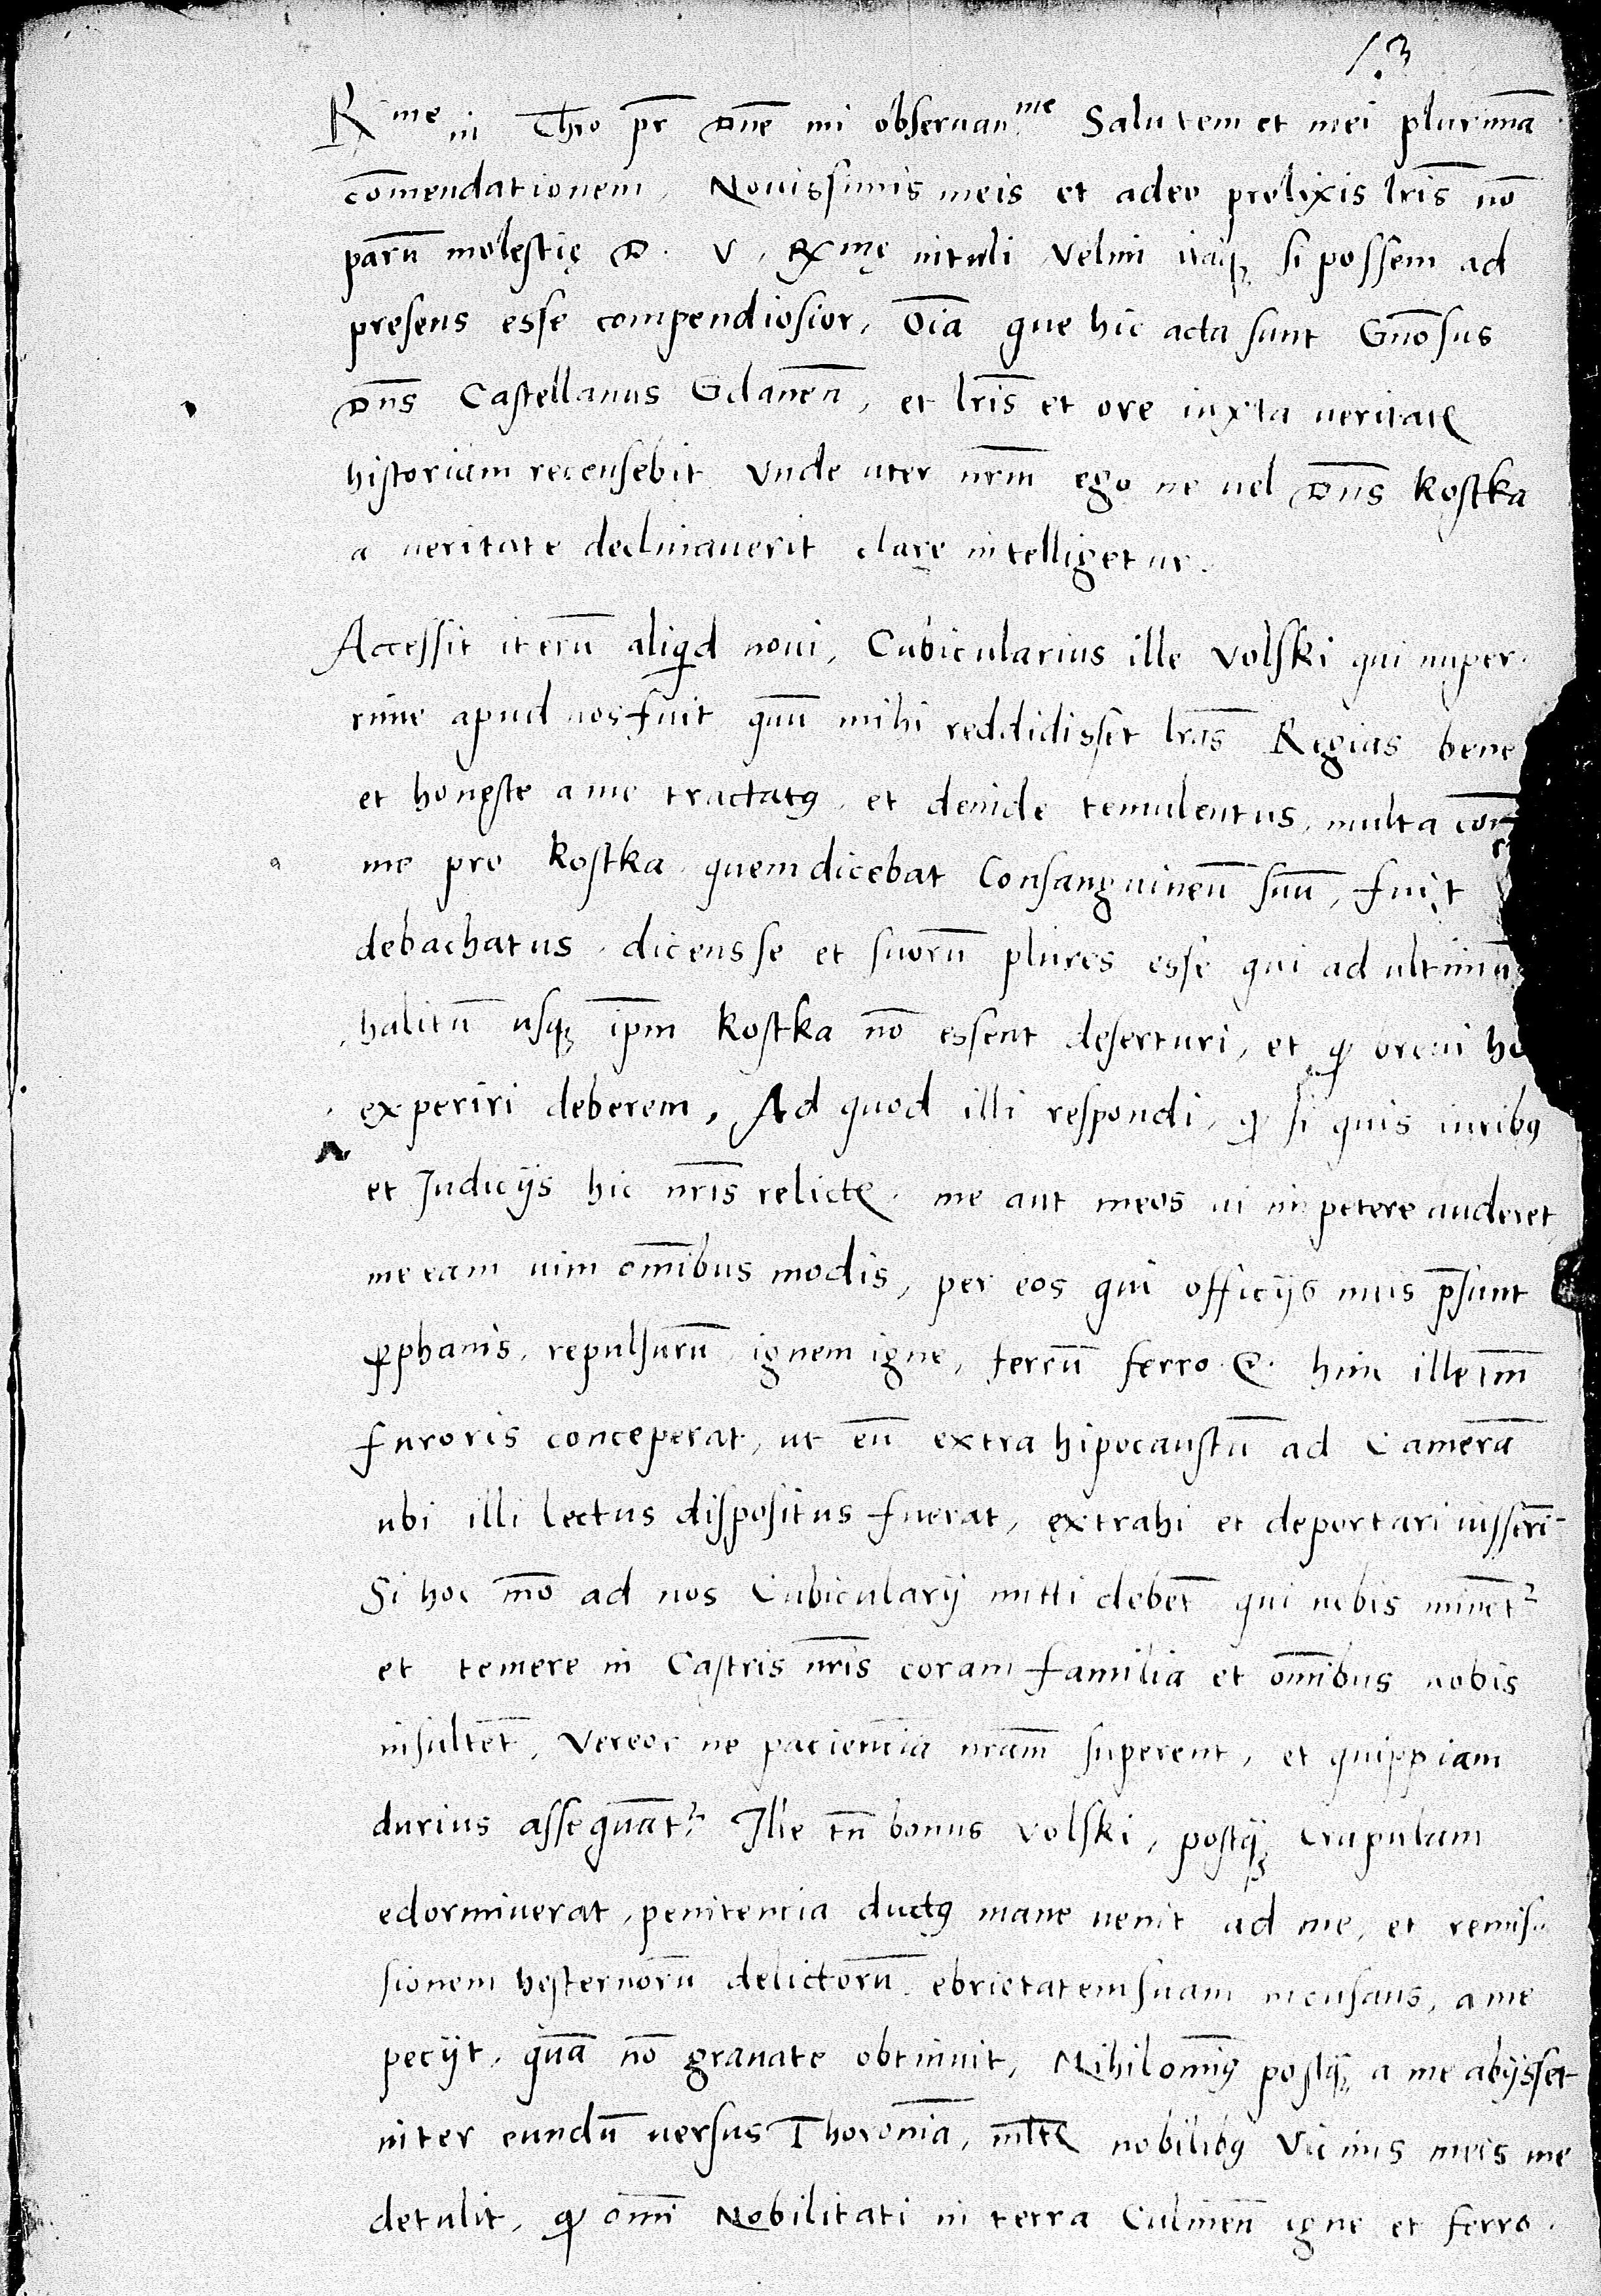 13
R^me in Chro pr̄ Dn̄e mi obseruan^me Salutem et mei plurimā
com̄endationem, Nouissimis meis et adeo prolixis lr̄is nō
parū molestię D. V. R^mę intuli Velim itaq₃ si possem ad
presens esse compendiosior, Oīa que hic acta sunt Gn̄osus
Dn̄s Castellanus Gdanen̄, et lr̄is et ore iuxta veritatē
historiam recensebit Vnde uter nr̄m ego ne uel Dn̄s Kostka
a ueritate declinauerit clare intelligetur.
Accessit iterū aliqd noui, Cubicularius ille Volski qui nuper
rime apud nos fuit quū mihi reddidisset lr̄as Regias bene
et honeste a me tractatꝰ, et deinde temulentus, multa con
me pro Kostka quem dicebat Consanguineū suū, fuit
debachatus, dicens se et suorū plures esse qui ad ultimū
halitū usq₃ ip̄m Kostka nō essent deserturi, et ꝙ breui ho
experiri deberem, Ad quod illi respondi, ꝙ si quis iuribꝰ
et Judicijs hic nr̄is relictꝭ, me aut meos ui impetere auderet
me eam uim om̄ibus modis, per eos qui officijs meis p̄sunt
ꝓphanis, repulsurū, ignem igne, ferrū ferro &. hinc ille tm̄
furoris conceperat, ut eū extra hipocaustū ad Camerā
ubi illi lectus dispositus fuerat, extrahi et deportari iusserī
Si hoc mō ad nos Cubicularij mitti debēt qui nobis minēt^r
et temere in Castris nr̄is coram familia et om̄ibus nobis
insultēt, Vereor ne pacienciā nr̄am superent, et quippiam
durius assequāt^r. Ille tn̄ bonus Volski, postq₃ crapulam
edormiuerat, penitencia ductꝰ mane uenit ad me, et remis
sionem hesternorū delictorū, ebrietatem suam incusans, a me
pecijt, quā nō grauate obtinuit, Nihilomīꝰ postq₃ a me abijsset
inter eundū uersus Thoroniā, mltꝭ nobilibꝰ Vicinis meis me
detulit, ꝙ om̄i Nobilitati in terra Culmen̄ igne et ferro